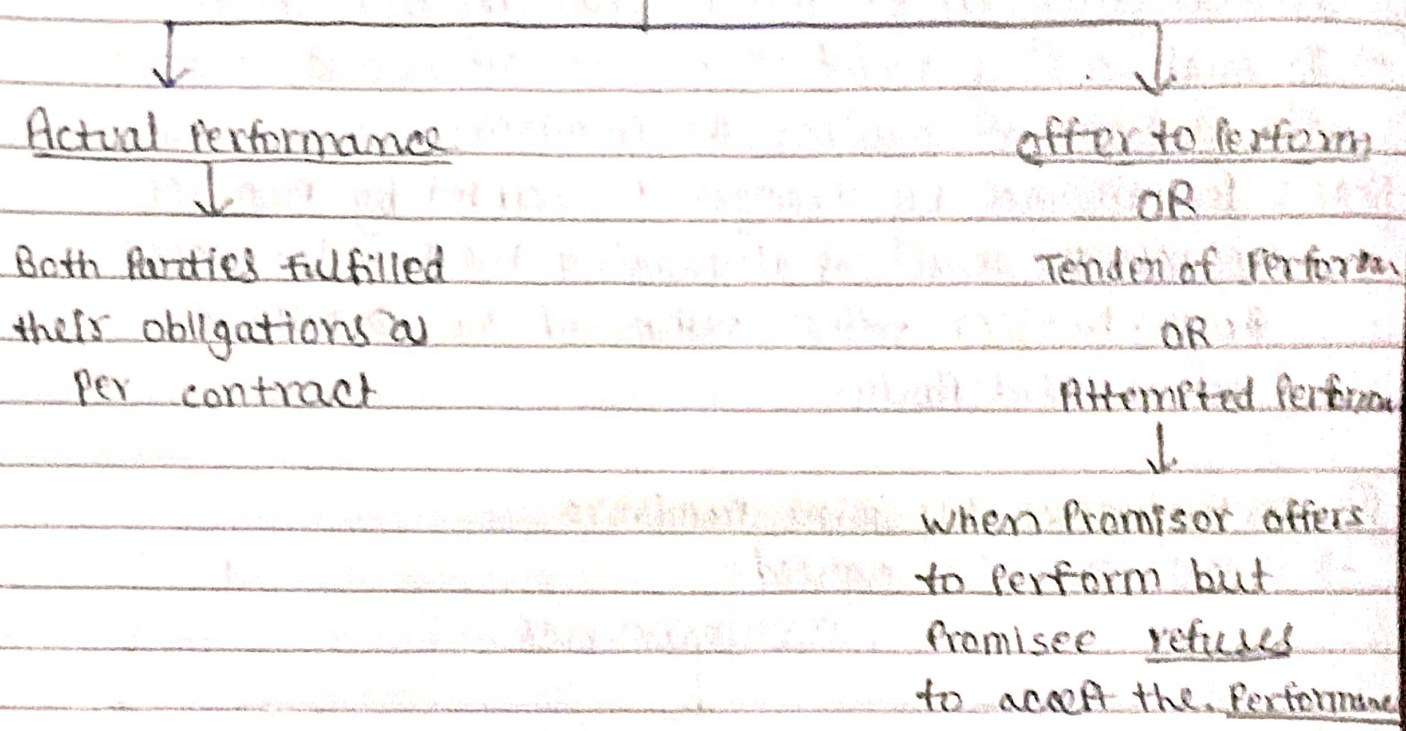 Actual Performance
Both Parties fulfilled
their obligations as
Per contract
offer to Perform
OR
Tender of Performan
OR
Attempted Performan
when Promisor offers
to Perform but
Promisee refuses
to accept the Performance